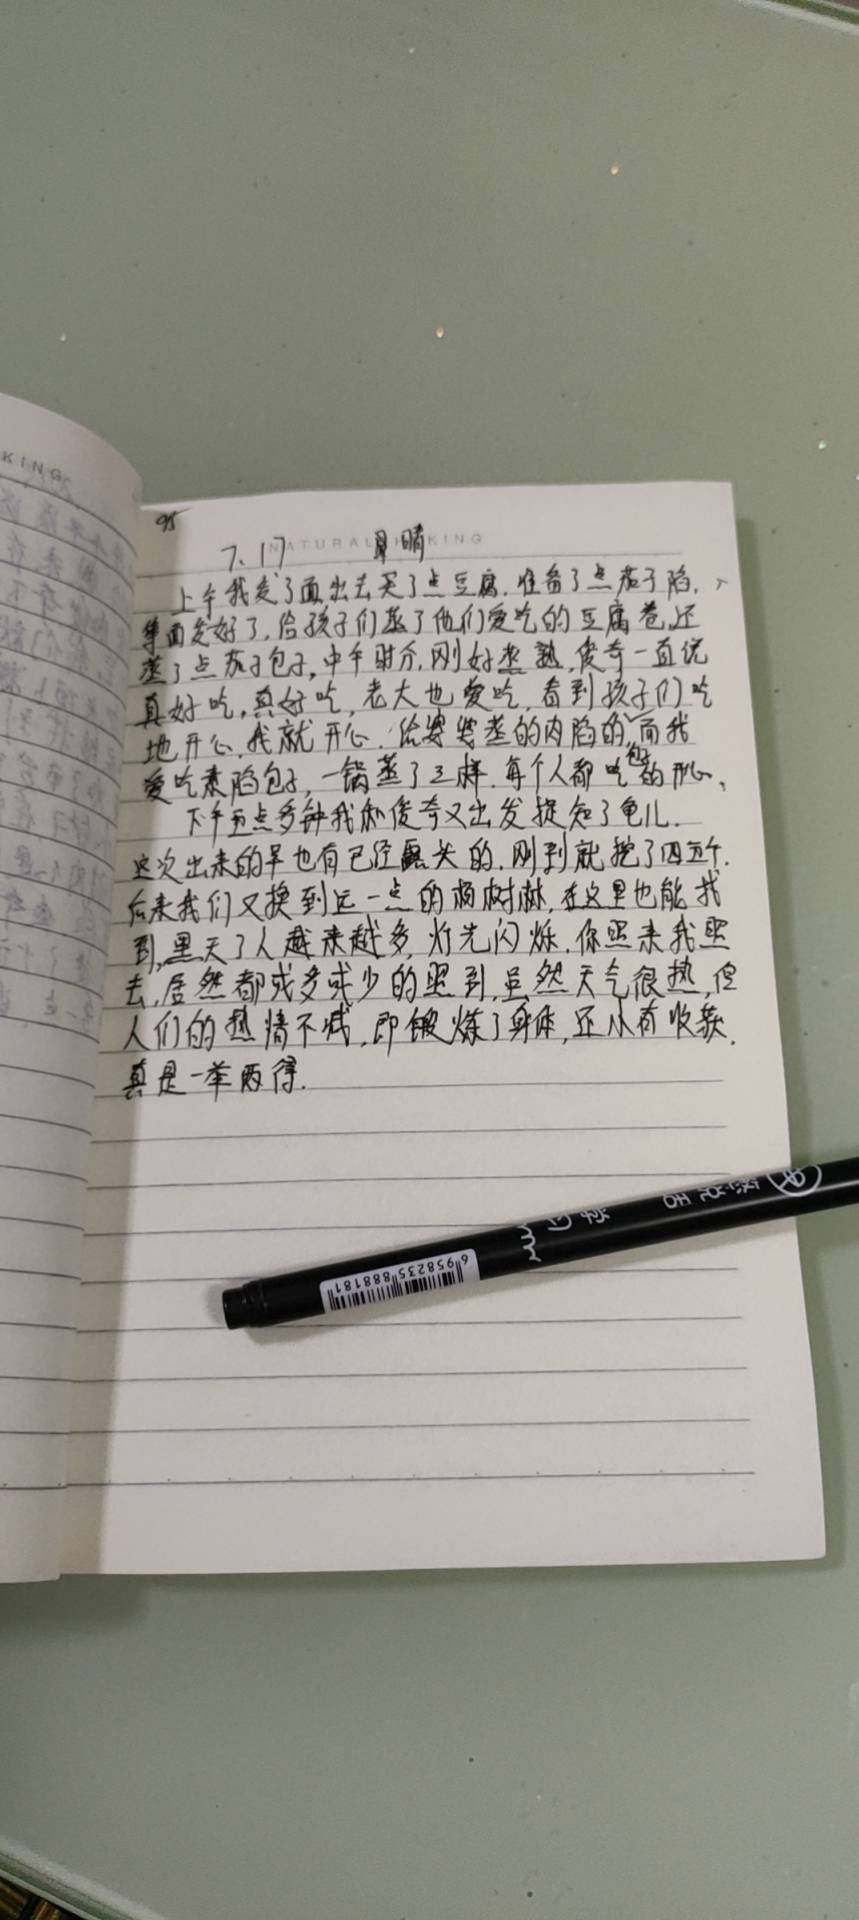 KING
95
NATURAL KING
7.17 晴
上午我发了面出去买了点豆腐.准备了点茄子陷,
等面发好了,给孩子们蒸了他们爱吃的豆腐卷,还
蒸了点茄子包子,中午时分,刚好蒸熟,俊奇一直说
真好吃,真好吃,老大也爱吃,看到孩子们吃
地开心,我就开心.给婆婆蒸的肉陷的,而我
爱吃素陷包子,一锅蒸了三样.每个人都吃的开心,
下午五点多钟我和俊奇又出发捉知了龟儿.
这次出来的早也有已经露头的.刚到就挖了四五个.
后来我们又换到远一点的杨树林,在这里也能找
到,黑天了人越来越多,灯光闪烁.你照来我照
去,居然都或多或少的照到,虽然天气很热,但
人们的热情不减,即锻炼了身体,还小有收获,
真是一举两得.
6958235888181